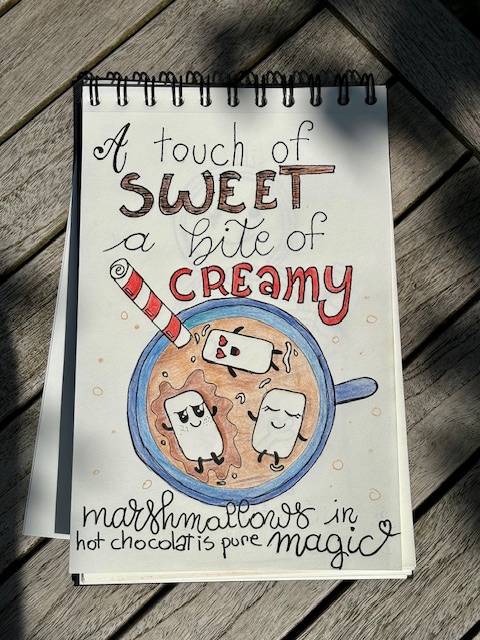 A touch of
SWEET
a bite of
CREAMY
marshmallows in
hot chocolat is pure magic